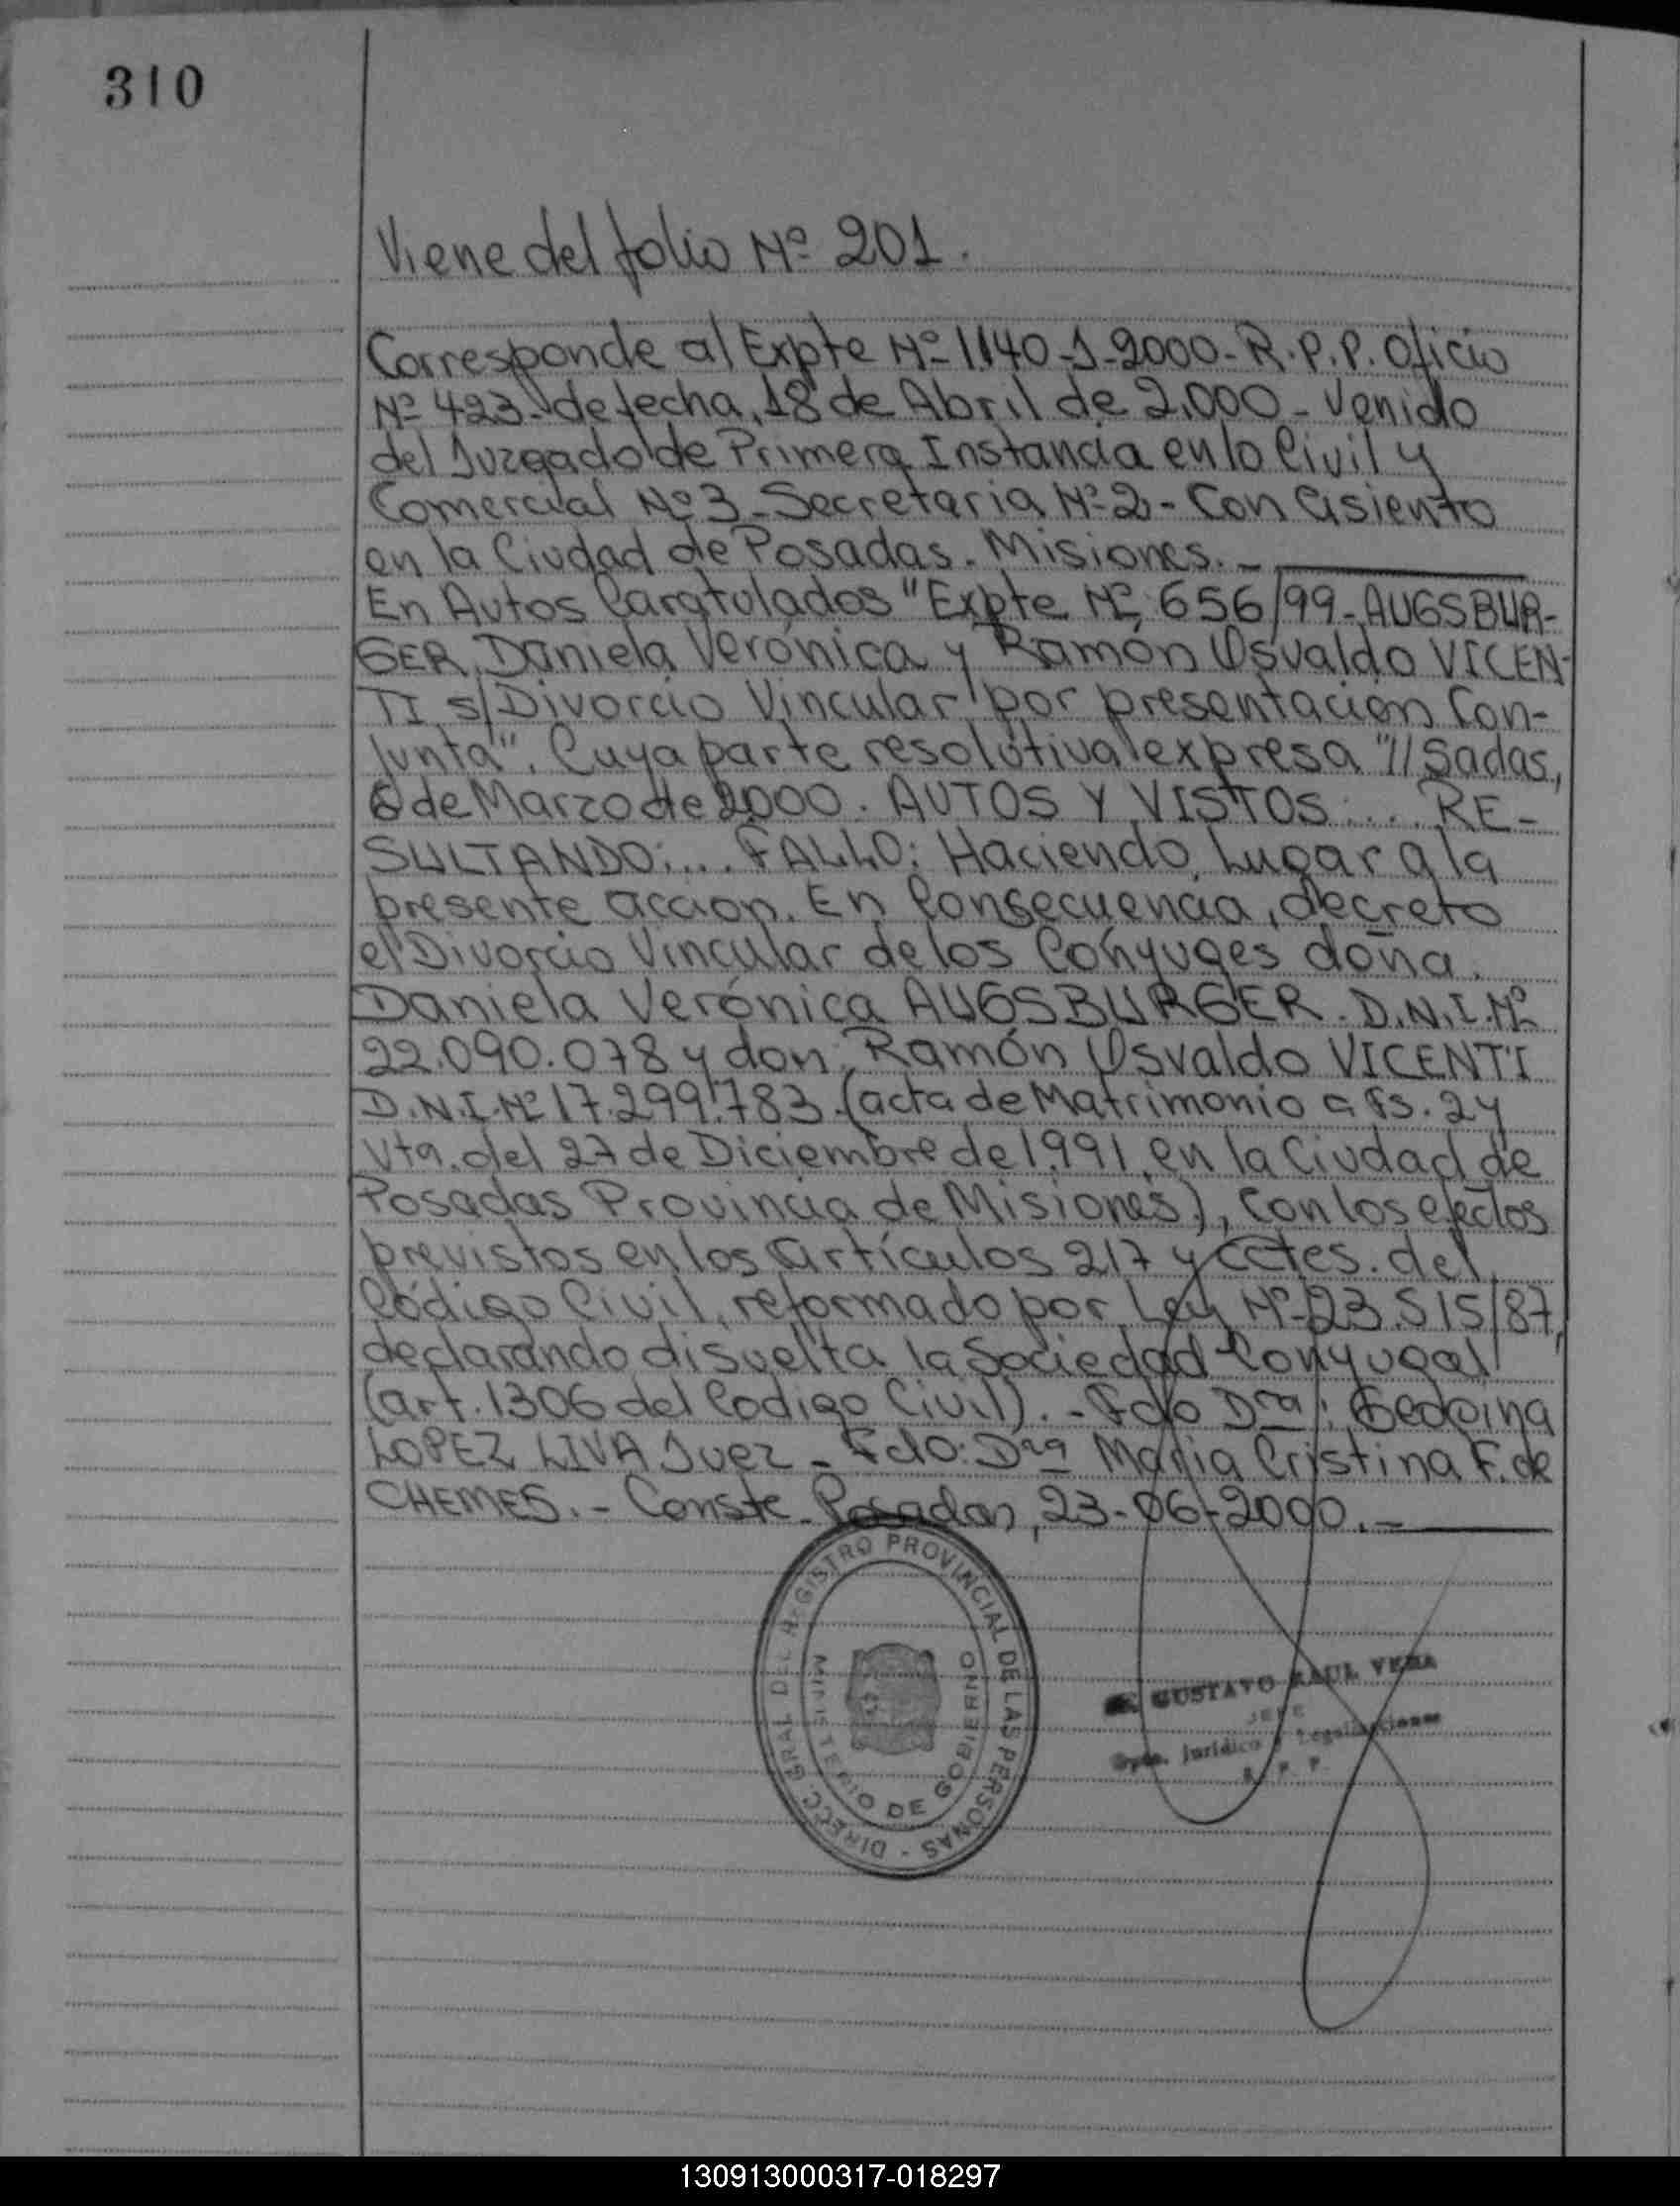 310
Viene del folio Nº 201.
Corresponde al Expte Nº 1140-J-2000- R.P.P. Oficio
Nº 423- de fecha, 18 de Abril de 2.000 - Venido
del Juzgado de Primera Instancia en lo Civil y
Comercial Nº 3 - Secretaria Nº 2 - Con Asiento
en la Ciudad de Posadas. Misiones. -
En Autos Caratulados "Expte Nº 656/99- AUGSBUR-
GER, Daniela Verónica y Ramón Osvaldo VICEN-
TI s/Divorcio Vincular por presentación Con-
junta". Cuya parte resolutiva expresa "//Sadas,
de Marzo de 2000. AUTOS Y VISTOS: ... RE-
SULTANDO: ... FALLO: Haciendo Lugar a la
presente acción. En Consecuencia, decreto
el Divorcio Vincular de los Cónyuges doña.
Daniela Verónica AUGSBURGER. D.N.I. Nº
22.090.078 y don; Ramón Osvaldo VICENTI
D.N.I. Nº 17.299.783 (acta de Matrimonio a fs. 2 y
Vta. del 27 de Diciembre de 1.991, en la Ciudad de
Posadas Provincia de Misiones), Con los efectos
previstos en los Artículos 217 y cctes. del
Código Civil, reformado por Ley Nº 23.515/87,
declarando disuelta la Sociedad Conyugal
(art. 1306 del Codigo Civil). - Fdo Dra:
LOPEZ LIVA Juez - Fdo: Dra Maria Cristina F. de
CHEMES. - Conste - Posadas, 23-06-2000. -
DIRECC. GRAL DEL REGISTRO PROVINCIAL DE LAS PERSONAS -
MINISTERIO DE GOBIERNO
GUSTAVO RAUL VERA
JEFE
Dpto. Jurídico y Legalizaciones
R. P. P.
130913000317-018297